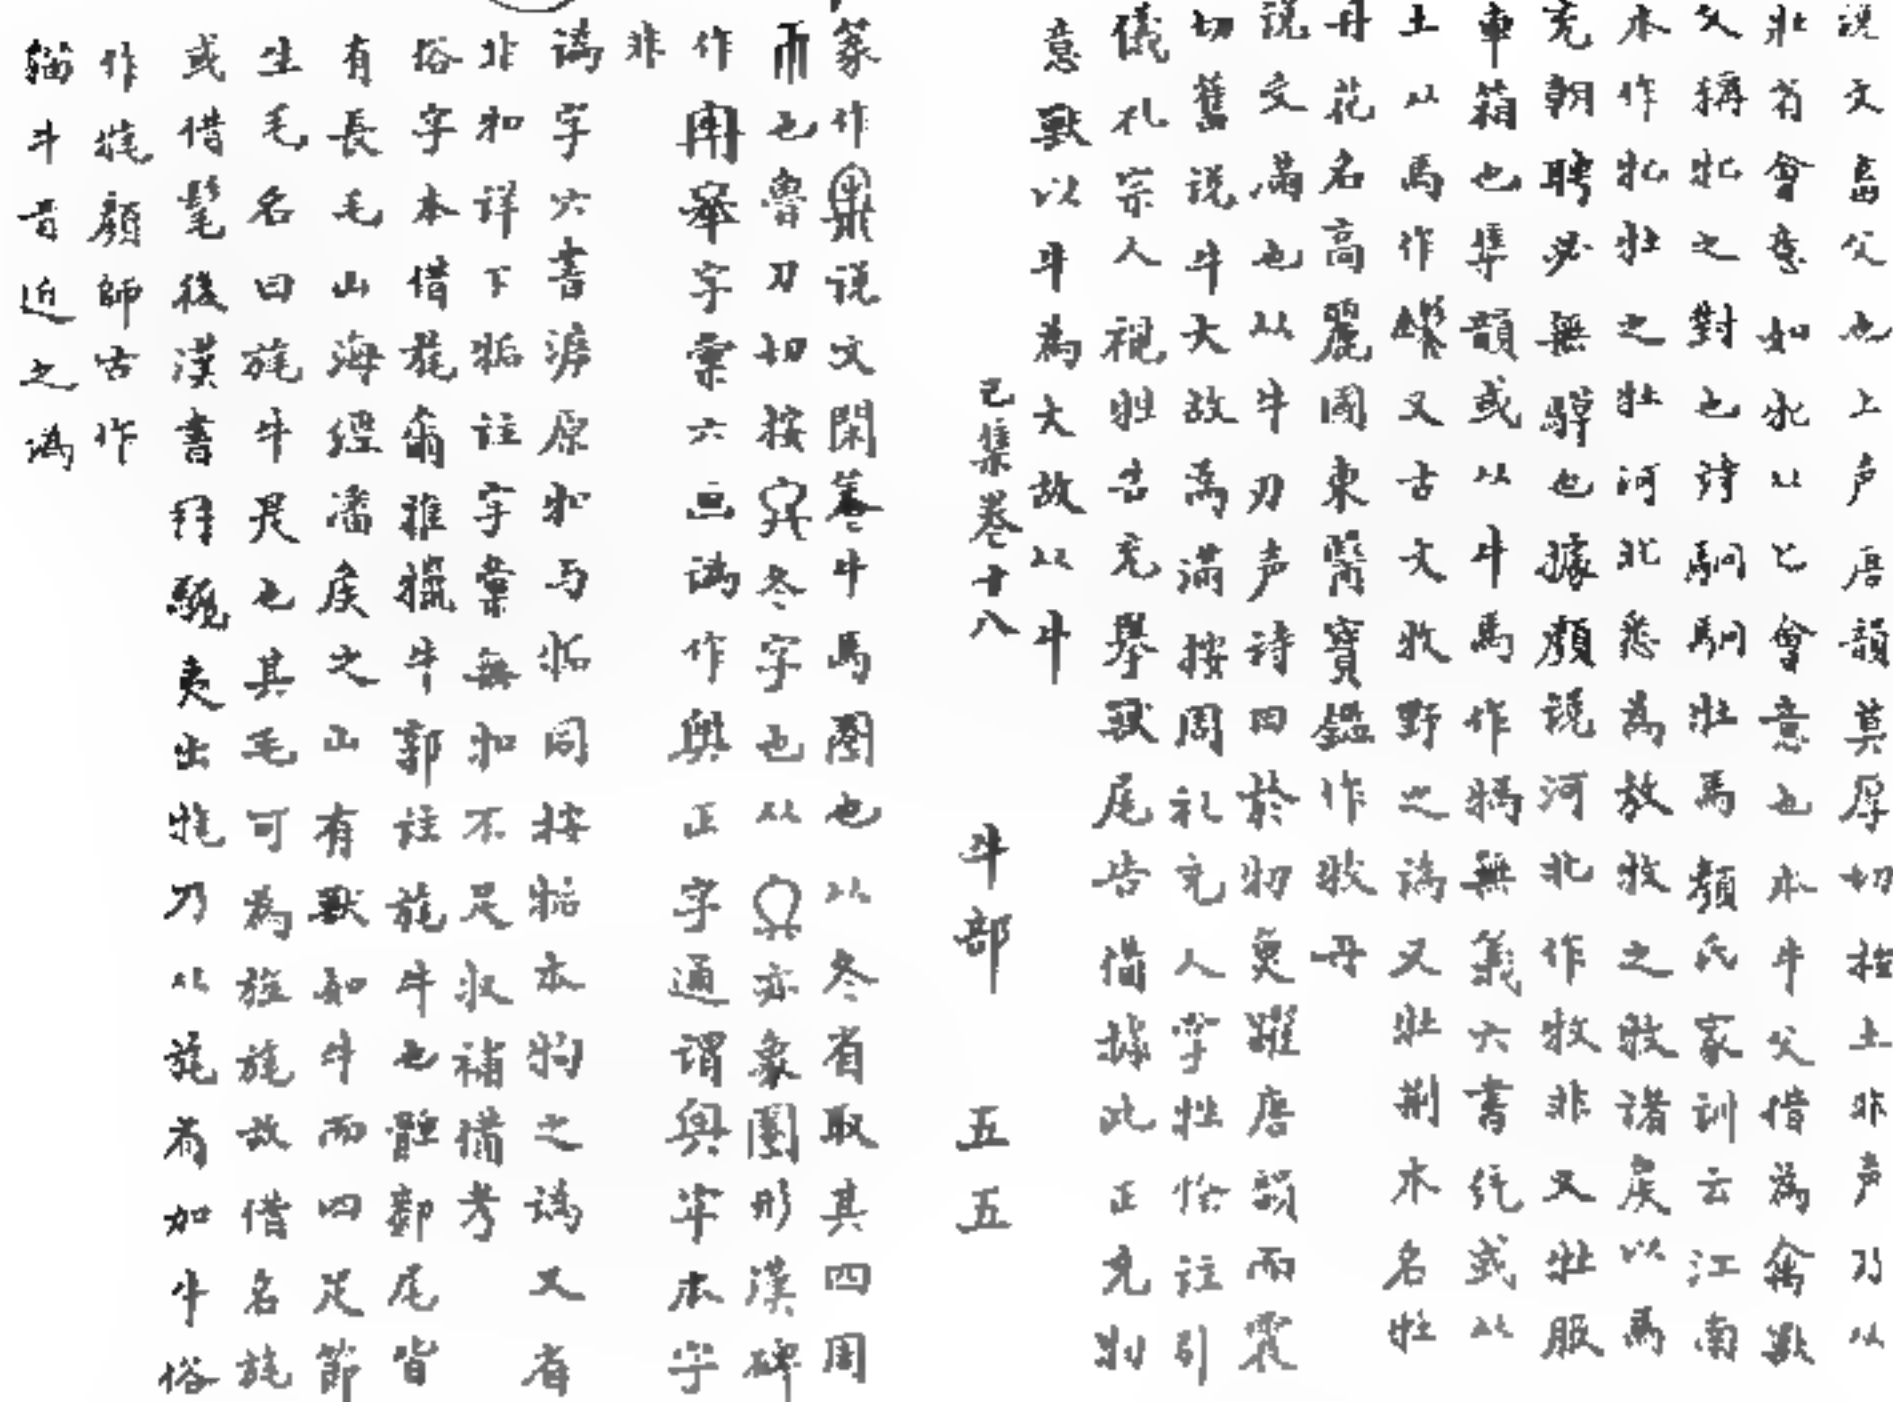 说文畜父也上声唐韻莫厚切在土非声乃从
牡省會意如牝以匕會意也本牛父借為禽獸
父稱牝牡之對也诗駉駉牡馬顏氏家训云江南
本作牝牡之牡河北悉為放牧之牧诸矦以馬
充朝聘必無騲也據顏说河北作牧非又牡服
車箱也集韻或以牛馬作㹑無義六書统或从
土从馬作又古文牧野之譌又牡荆木名牡
丹花名高麗國東醫寶鑑作牧丹
说文滿也从牛刃声诗田於牣更躍唐韻而震
切舊说牛大故為滿按周礼充人字牲怜注引
儀礼宗人視牲告充舉獸尾告備據此正充牣
意獸以牛為大故以牛
己集巻十八 牛部 五五
篆作说文閑養牛馬圈也从冬省取其四周
帀也魯刀切按冬字也从亦象圈形漢碑
作字彙六画譌作輿正字通谓輿牢本字
非
譌字六書㳺原牞与㸸同按㸸本物之譌又有
非和详下㸸註字彙無牞不足收補備考
俗字本借旄爾雅犣牛郭註旄牛也髀鄣尾皆
有長毛山海經潘矦之山有獸如牛而四足節
生毛名曰旄牛是也其毛可為旌旄故借名旄
或借髦後漢書冄駹夷出㹈乃从旄省加牛俗
作㹈顏師古作
貓牛音近之譌